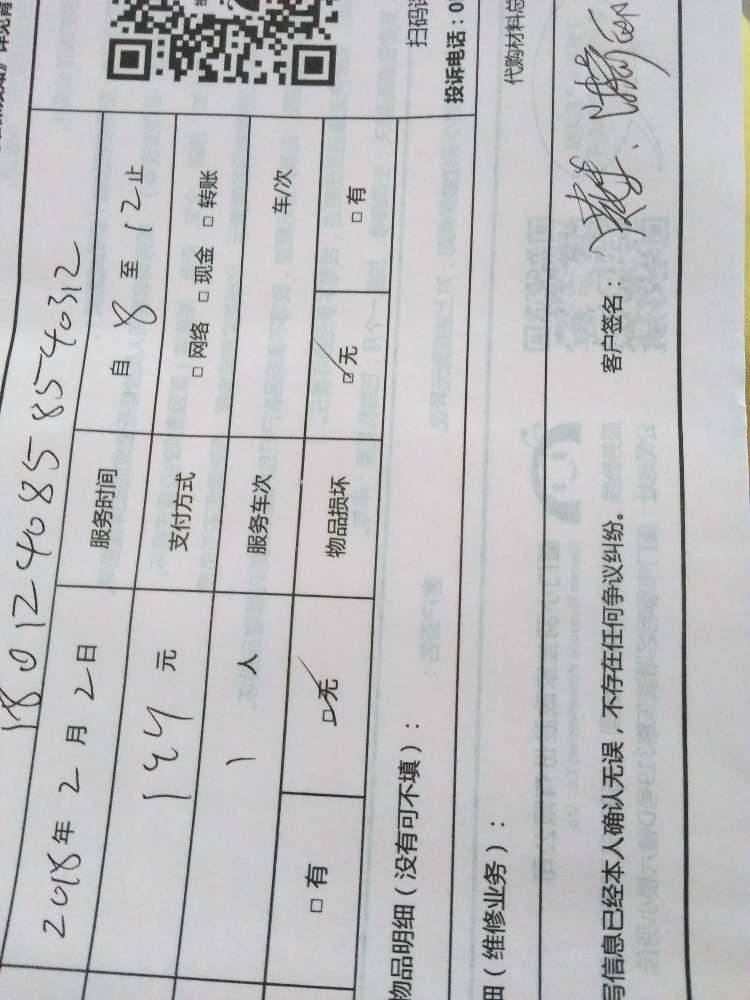 扫码
投诉电话：0
18012408585540312
2018年2月2日 服务时间 自8至12止
元 支付方式 □网络 □现金 □转账
1人 服务车次 车/次
□有 ☑无 物品损坏 ☑无 □有
物品明细（没有可不填）：
代购材料总
（维修业务）：
写信息已经本人确认无误，不存在任何争议纠纷。 客户签名：